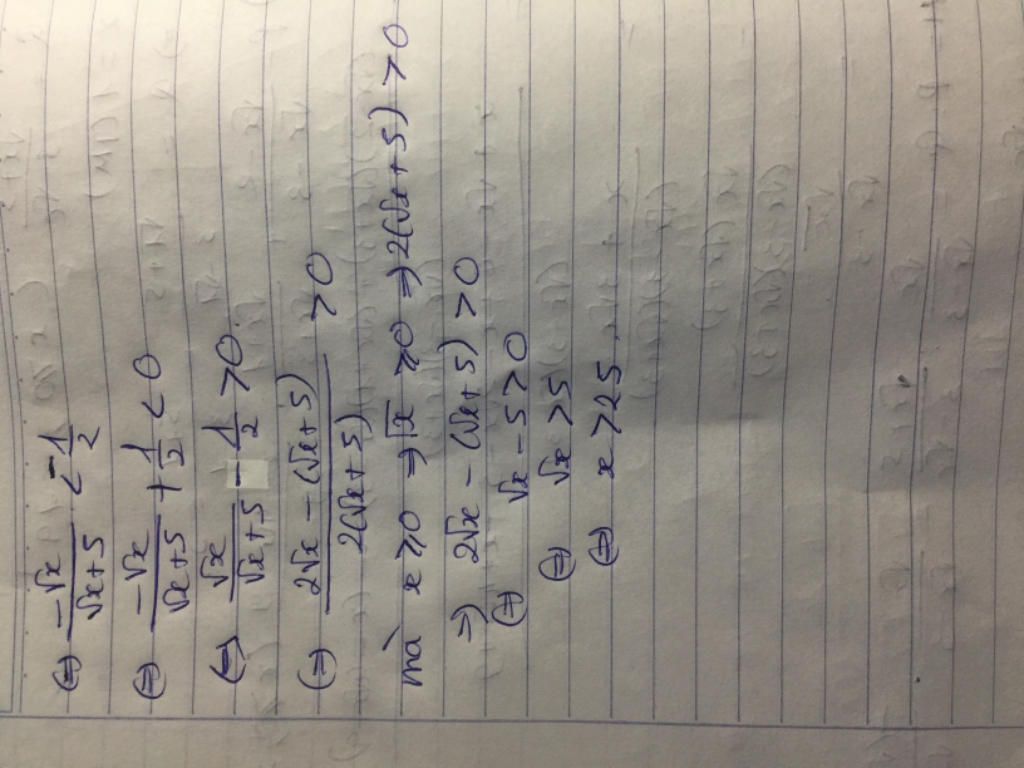 ⇔ -√x/(√x+5) < -1/2
⇔ -√x/(√x+5) + 1/2 < 0
⇔ √x/(√x+5) - 1/2 > 0
⇔ (2√x - (√x+5))/(2(√x+5)) > 0
mà x ⩾ 0 ⇒ √x ⩾ 0 ⇒ 2(√x+5) > 0
⇒ 2√x - (√x+5) > 0
⇔ √x - 5 > 0
⇔ √x > 5
⇔ x > 25.